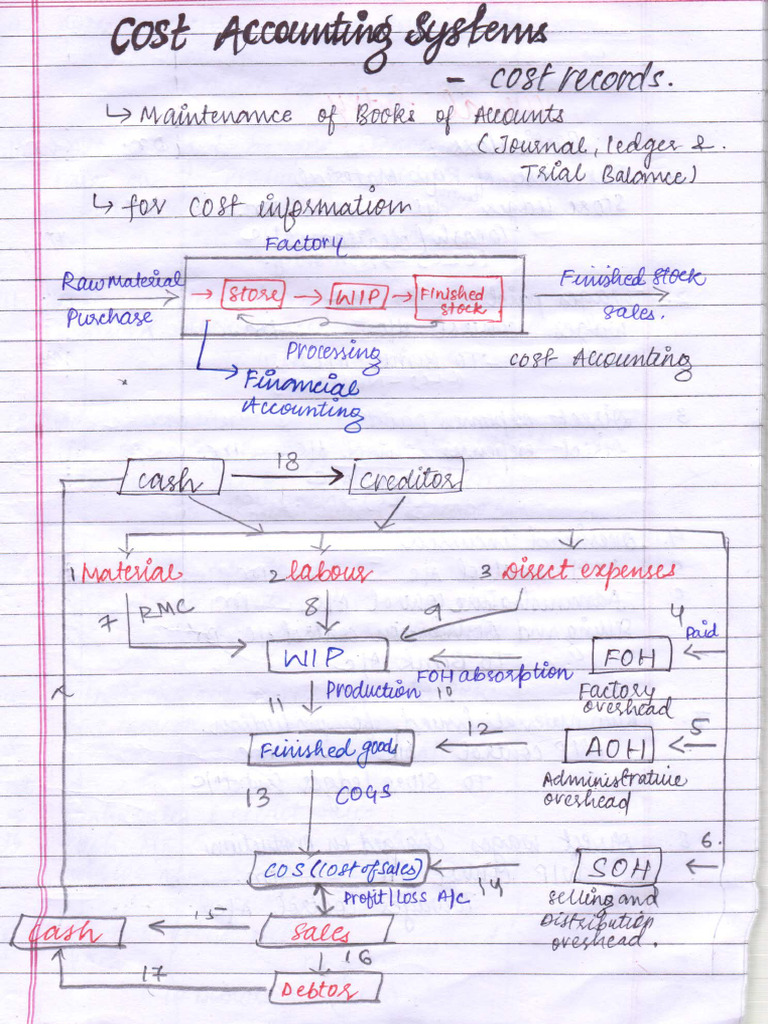 Cost Accounting Systems
- cost records.
↳ Maintenance of Books of Accounts
(Journal, ledger &.
Trial Balance)
↳ for cost information
Factory
Raw Material
Purchase
→ Store → WIP → Finished
stock
Finished stock
sales.
Processing
cost Accounting
Financial
Accounting
18
Cash
Creditor
1 Material
2 labour
3 Direct expenses
7 RMC
8
9
4
Paid
WIP
FOH absorption
10
FOH
Factory
overhead
11
Production
12
5
Finished goods
AOH
Administrative
overhead
13
COGS
6.
COS (Cost of Sales)
14
SOH
Profit/Loss A/c
Selling and
Distribution
overhead.
Cash
15
Sales
16
17
Debtor